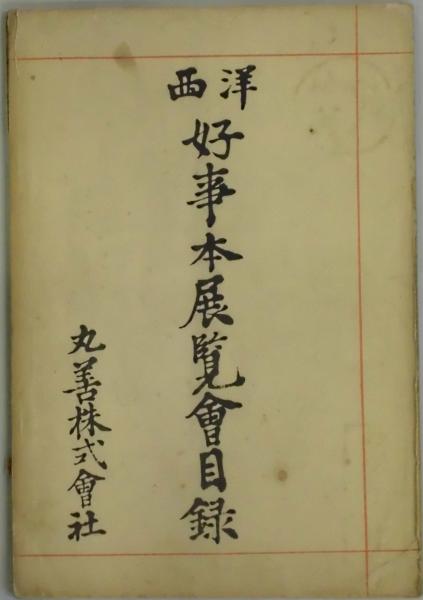 西洋
好事本展覽會目録
丸善株式會社